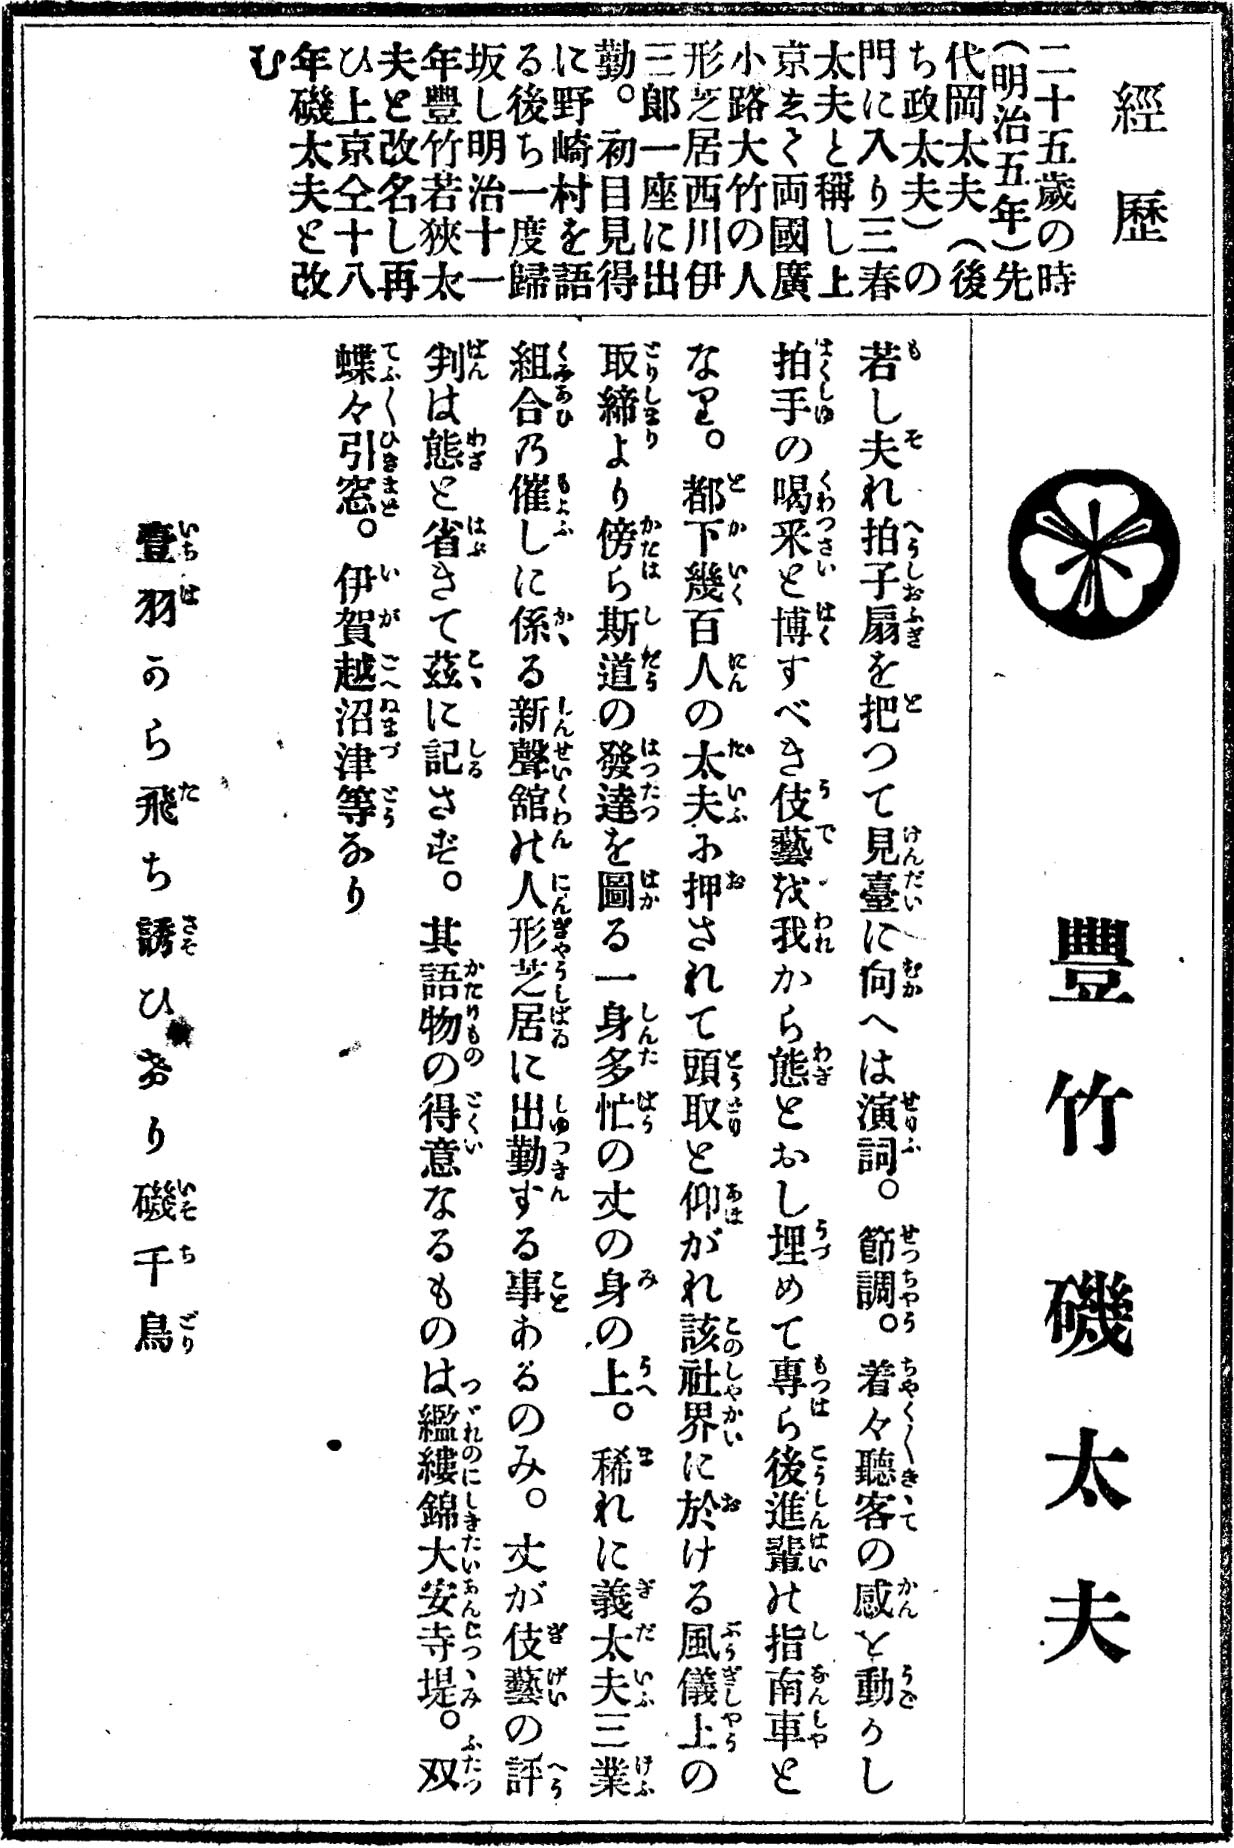 經歷
二十五歲の時
(明治五年)先
代岡太夫(後
ち政太夫)の
門に入り三春
太夫と稱し上
京志て両國廣
小路大竹の人
形芝居西川伊
三郎一座に出
勤。初目見得
に野崎村を語
る後ち一度歸
坂し明治十一
年豐竹若狹太
夫と改名し再
ひ上京仝十八
年磯太夫と改
む
豐竹磯太夫
若し夫れ拍子扇を把つて見臺に向へは演詞。節調。着々聽客の感を動かし
拍手の喝釆と博すべき伎藝を我から態とおし埋めて專ら後進輩の指南車と
なり。都下幾百人の太夫に押されて頭取と仰がれ該社界に於ける風儀上の
取締より傍ら斯道の發達を圖る一身多忙の丈の身の上。稀れに義太夫三業
組合の催しに係る新聲舘の人形芝居に出勤する事あるのみ。丈が伎藝の評
判は態と省きて茲に記さず。其語物の得意なるものは繿縷錦大安寺堤。双
蝶々引窓。伊賀越沼津等なり
壹羽から飛ち誘ひあり磯千鳥